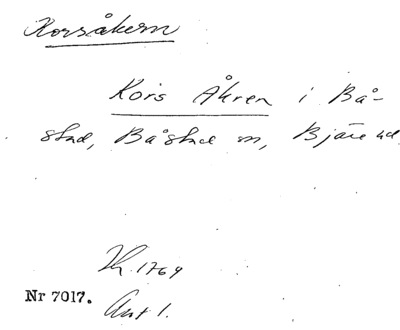 Korsåkern
Kors Åkren i Bå-
stad, Båstad sn, Bjäre hd
Kh. 1769
Nr 7017.
Akt 1.